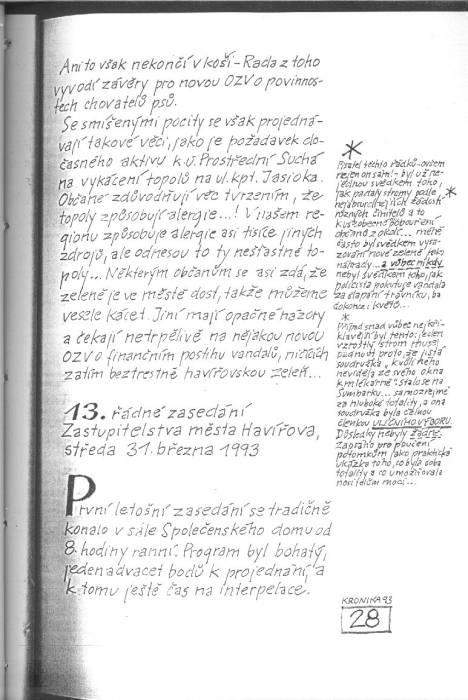 Ani to však nekončí v koši - Rada z toho
vyvodí závěry pro novou OZV o povinnos-
tech chovatelů psů.
Se smíšenými pocity se však projedná-
vají takové věci, jako je požadavek do-
časného aktivu k.ú. Prostřední Suchá
na vykácení topolů na ul. kpt. Jasioka.
Občané zdůvodňují věc tvrzením, že
topoly způsobují alergie...! V našem re-
gionu způsobuje alergie asi tisíce jiných
zdrojů, ale odnesou to ty nešťastné to-
poly... Některým občanům se asi zdá, že
zeleně je ve městě dost, takže můžeme
vesele kácet. Jiní mají opačné názory
a čekají netrpělivě na nějakou novou
OZV o finančním postihu vandalů, ničících
zatím beztrestně havířovskou zeleň...
13. řádné zasedání
Zastupitelstva města Havířova,
středa 31. března 1993
První letošní zasedání se tradičně
konalo v sále Společenského domu od
8. hodiny ranní. Program byl bohatý,
jedenadvacet bodů k projednání, a
k tomu ještě čas na interpelace.
*
Pisatel těchto řádků - ovšem
nejen on sám! - byl už ne-
jednou svědkem toho,
jak padaly stromy podle *
nejabsurdnějších žádostí
různých činitelů a to
k všeobecné
občanů z okolí... méně
často byl svědkem vysa-
zování nové zeleně jako
náhrady... a vůbec nikdy
nebyl svědkem toho, jak
policista pokutuje vandala
za šlapání trávníku, ba
dokonce i květů...
*
Případ snad vůbec nejkři-
klavější byl tento:
vzrostlý strom musel
padnout proto, že jistá
soudružka „kvůli němu
neviděla ze svého okna
k mlékárně". Stalo se na
Šumbarku... samozřejmě
za hluboké totality, a ona
soudružka byla čelnou
členkou ULIČNÍHO VÝBORU.
Důsledky nebyly žádné.
pro poučení
potomkům jako praktická
ukázka toho, co byla doba
totality a co umožňovala
nositelům moci...
KRONIKA 93
28